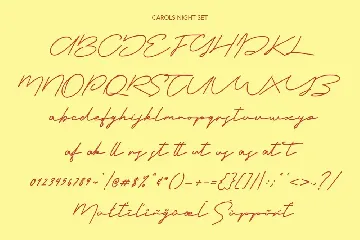 CAROLS NIGHT SET
ABCDEFGHIJKL
MNOPQRSTUVWXYZ
abcdefghijklmnopqrstuvwxyz
af ak ll os st tt ut us as att t
0123456789-'/@#$%^&*()-+-={}[]||:;"<>.?/
Multilingual Support